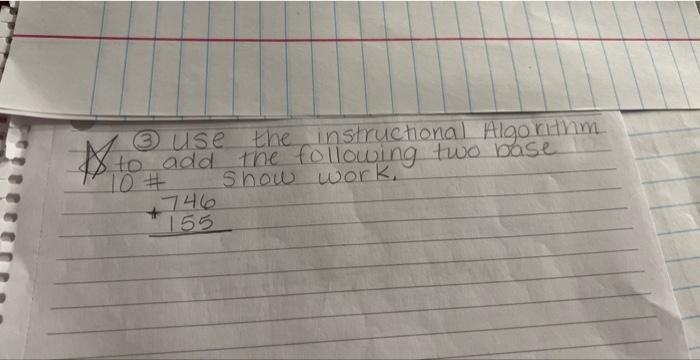 ③ use the instructional Algorithm
to add the following two base
10 # show work.
746
+ 155